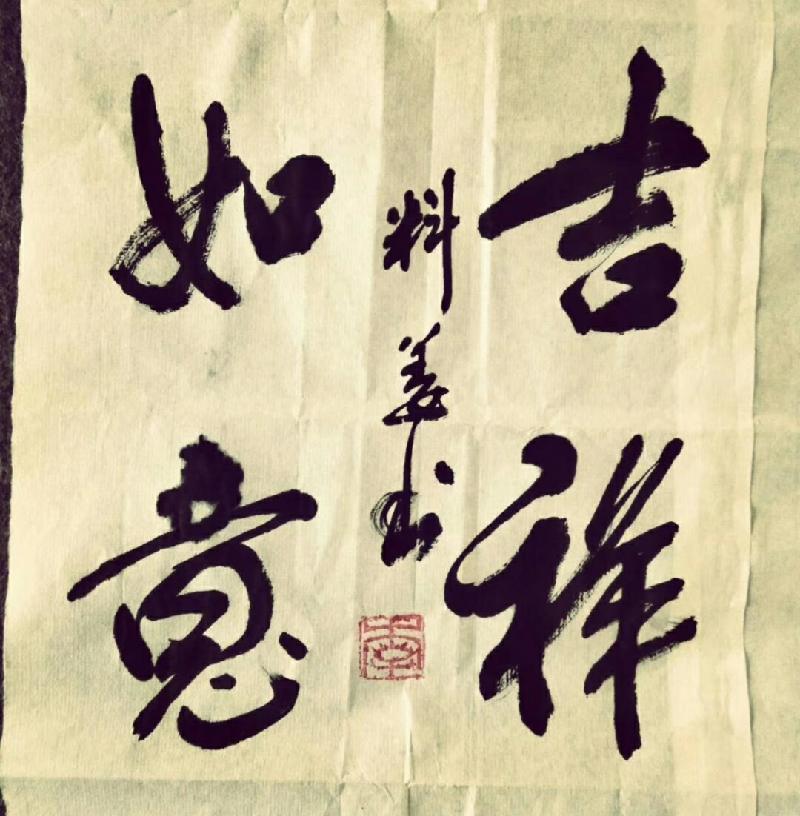 吉祥
如意
料姜书